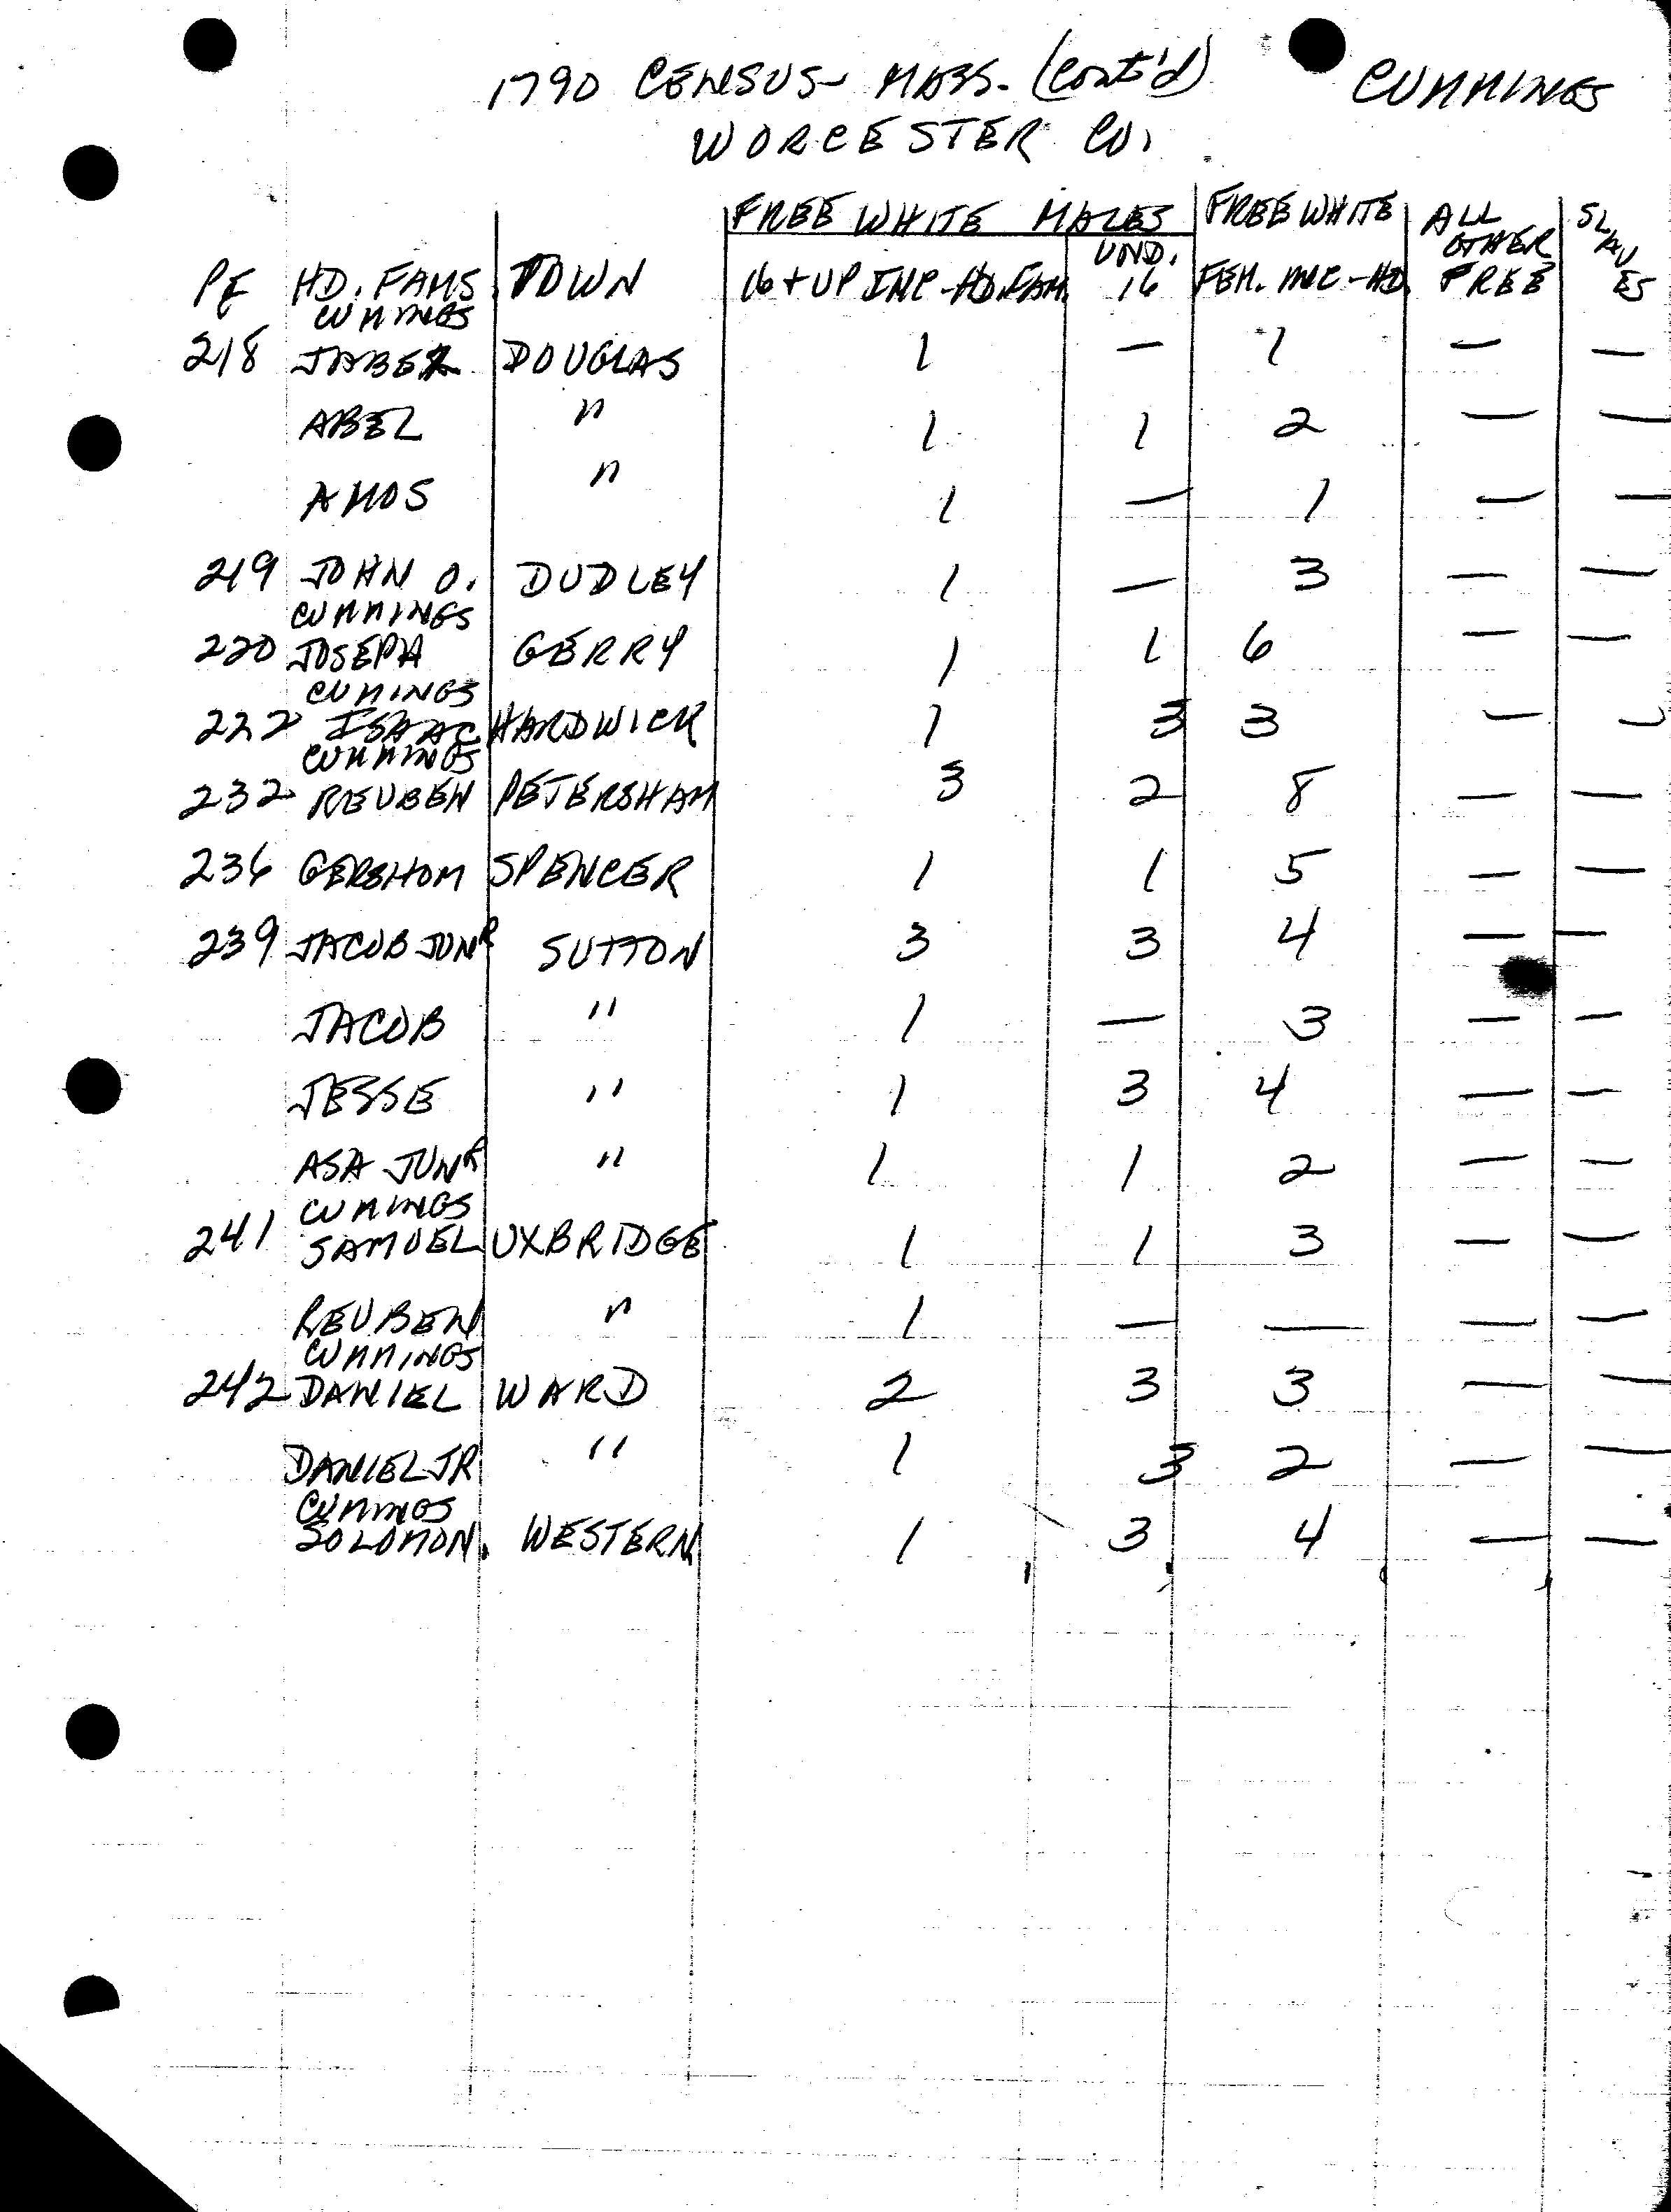 1790 CENSUS- MASS. (Cont'd) CUMMINGS
WORCESTER CO.
FREE WHITE MALES FREE WHITE ALL OTHER FREE SLAVES
PG HD. FAMS TOWN 16 + UP INC-HD.FAM. UND. 16 FEM. INC-HD.
CUMINGS
218 JABEZ DOUGLAS 1 — 1 — —
ABEL " 1 1 2 — —
AMOS " 1 — 1 — —
219 JOHN O. DUDLEY 1 — 3 — —
CUMMINGS
220 JOSEPH GERRY 1 1 6 — —
CUMINGS
222 ISAAC HARDWICK 1 3 3 — —
CUMMINGS
232 REUBEN PETERSHAM 3 2 8 — —
236 GERSHOM SPENCER 1 1 5 — —
239 JACOB JUNR SUTTON 3 3 4 — —
JACOB " 1 — 3 — —
JESSE " 1 3 4 — —
ASA JUNR " 1 1 2 — —
CUMINGS
241 SAMUEL UXBRIDGE 1 1 3 — —
REUBEN " 1 — — — —
CUMMINGS
242 DANIEL WARD 2 3 3 — —
DANIEL JR " 1 3 2 — —
CUMINGS
SOLOMON. WESTERN 1 3 4 — —